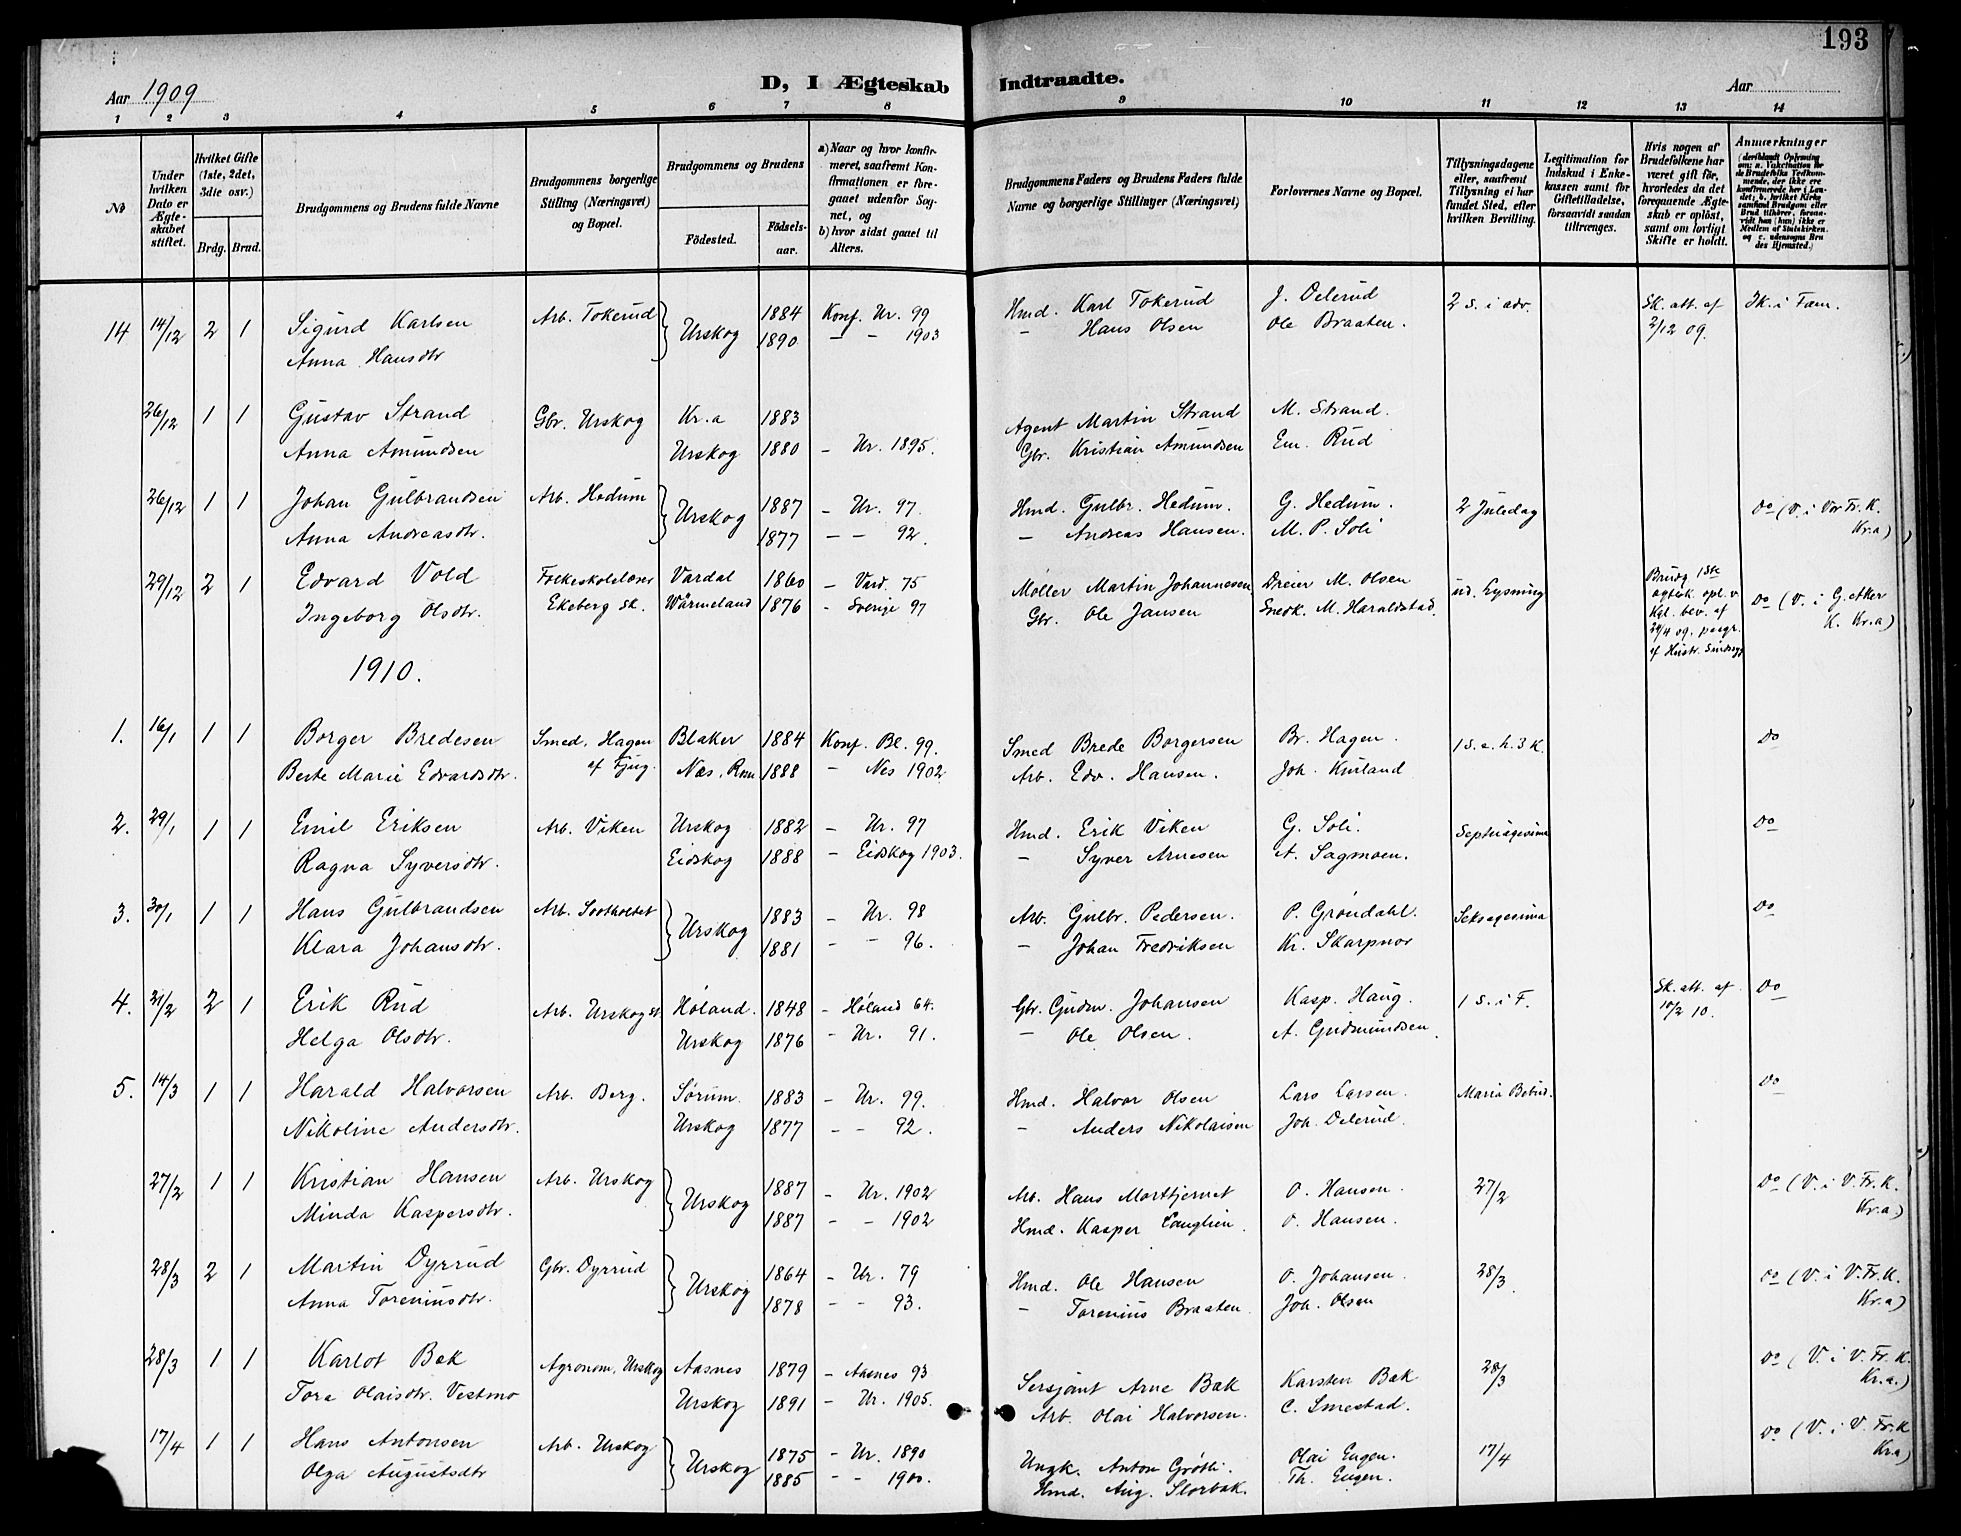 193
Aar 1909
D, I Ægteskab Indtraadte.
Aar
1 2 3 4 5 6 7 8 9 10 11 12 13 14
No
Under hvilken Dato er Ægteskabet stiftet.
Hvilket Gifte (1ste, 2det, 3die osv.)
Brdg. Brud.
Brudgommens og Brudens fulde Navne
Brudgommens borgerlige Stilling (Næringsvei) og Bopæl.
Brudgommens og Brudens
Födested. Födselsaar.
a) Naar og hvor konfirmeret, saafremt Konfirmationen er foregaaet udenfor Sognet, og
b) hvor sidst gaaet til Alters.
Brudgommens Faders og Brudens Faders fulde Navne og borgerlige Stillinger (Næringsvei)
Forlovernes Navne og Bopæl.
Tillysningsdagene eller, saafremt Tillysning ei har fundet Sted, efter hvilken Bevilling.
Legitimation for Indskud i Enkekassen samt for Giftetilladelse, forsaavidt saadan tiltrænges.
Hvis nogen af Brudefolkene har været gift för, hvorledes da det foregaaende Ægteskab er oplöst, samt om lovligt Skifte er holdt.
Anmærkninger
14 14/12 2 1 Sigurd Karlsen Arb. Tokerud } Urskog 1884 Konf. Ur. 99 Hmd. Karl Tokerud J. Delerud 2 s. i adv. Sk. att. af 2/12 09. Ik. i Fam.
Anna Hansdtr 1890 – – 1903 – Hans Olsen Ole Braaten.
26/12 1 1 Gustav Strand Gbr. Urskog Kr.a 1883 Agent Martin Strand M. Strand.
Anna Amundsen Urskog 1880 – Ur. 1895. Gbr. Kristian Amundsen Em. Rud
26/12 1 1 Johan Gulbrandsen Arb. Hedum } Urskog 1887 – Ur. 97. Hmd. Gulbr. Hedum. G. Hedum. 2 Juledag Do (V. i Vor Fr. K. Kr.a)
Anna Andreasdtr. 1877 – – 92. – Andreas Hansen. M. P. Soli
29/12 2 1 Edvard Vold Folkeskolelærer Vardal 1860 – Vard. 75 Møller Martin Johannesen Dreier M. Olsen ud. Lysning Brudg 1ste ægtsk. opl. v. Kgl. bev. af 29/4 09. paagr. af Hustr. Sindssyg Do (V. i G. aker K. Kr.a)
Ingeborg Olsdtr. Ekeberg sk. Wärmeland 1876 – Sverige 97 Gbr. Ole Jansen Snedk. M. Haraldstad.
1910.
1. 16/1 1 1 Borger Bredesen Smed, Hagen Blaker 1884 Konf. Bl. 99. Smed Brede Borgersen Br. Hagen. 1 S. e. h. 3 K. Do
Berte Marie Edvardsdtr. af Fjug. Næs, Rom 1888 – Nes 1902 Arb. Edv. Hansen. Joh. Kurland
2. 29/1 1 1 Emil Eriksen Arb. Viken Urskog 1882 – Ur. 97 Hmd. Erik Viken G. Soli. Septuagesima Do
Ragna Syversdtr. Eidskog 1888 – Eidskog 1903. – Syver Arnesen A. Sagmoen.
3. 30/1 1 1 Hans Gulbrandsen Arb. Sootholtet } Urskog 1883 – Ur. 98 Arb. Gulbr. Pedersen. P. Grøndahl. Seksagesima Do
Klara Johansdtr. 1881 – – 96. – Johan Fredriksen Kr. Skarpnor
4. 21/2 2 1 Erik Rud Arb. Urskog st. Høland. 1848 – Høland 64. Gbr. Gudm. Johansen Kasp. Haug. 1 S. i F. Sk. att. af 10/2 10. Do
Helga Olsdtr. Urskog 1876 – Ur. 91. – Ole Olsen. A. Gudmundsen.
5. 14/3 1 1 Harald Halvorsen Arb. Berg. Sørum. 1883 – Ur. 99. Hmd. Halvor Olsen Lars Larsen. Maria Bebud. Do
Nikoline Andersdtr. Urskog 1877 – – 92. – Anders Nikolaisen Joh. Delerud.
27/2 1 1 Kristian Hansen Arb. Urskog } Urskog 1887 – Ur. 1902 Arb. Hans Morttjernet O. Hansen. 27/2 Do (V. i V. Fr. K. Kr.a.)
Minda Kaspersdtr. 1887 – – 1902 Hmd. Kasper Langlien. O. Hansen.
28/3 2 1 Martin Dyrrud Gbr. Dyrrud } Urskog 1864 – Ur. 79 Hmd. Ole Hansen O. Johansen. 28/3. Do (V. i V. Fr. K. Kr.a)
Anna Toreniusdtr. 1878 – – 93. – Torenius Braaten. Joh. Olsen
28/3 1 1 Karlot Bak Agronom, Urskog Aasnes 1879 – Aasnes 93 Sersjant Arne Bak Karsten Bak 28/3 Do (V. i V. Fr. K. Kr.a.)
Tora Olaisdtr. Vestmo Urskog 1891 – Ur. 1905. Arb. Olai Halvorsen. C. Smestad.
17/4 1 1 Hans Antonsen Arb. Urskog } Urskog 1875 – Ur. 1890 Ungk. Anton Grøtli. Olai Eugen. 17/4 Do (V. i V. Fr. K Kr.a)
Olga Augustsdtr 1885 – – 1900. Hmd. Aug. Storbak. Th. Eugen.